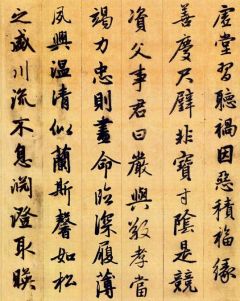 虚堂習聽禍因惡積福緣
善慶尺璧非寶寸陰是競
資父事君曰嚴與敬孝當
竭力忠則盡命臨深履薄
夙興温清似蘭斯馨如松
之盛川流不息淵澄取暎